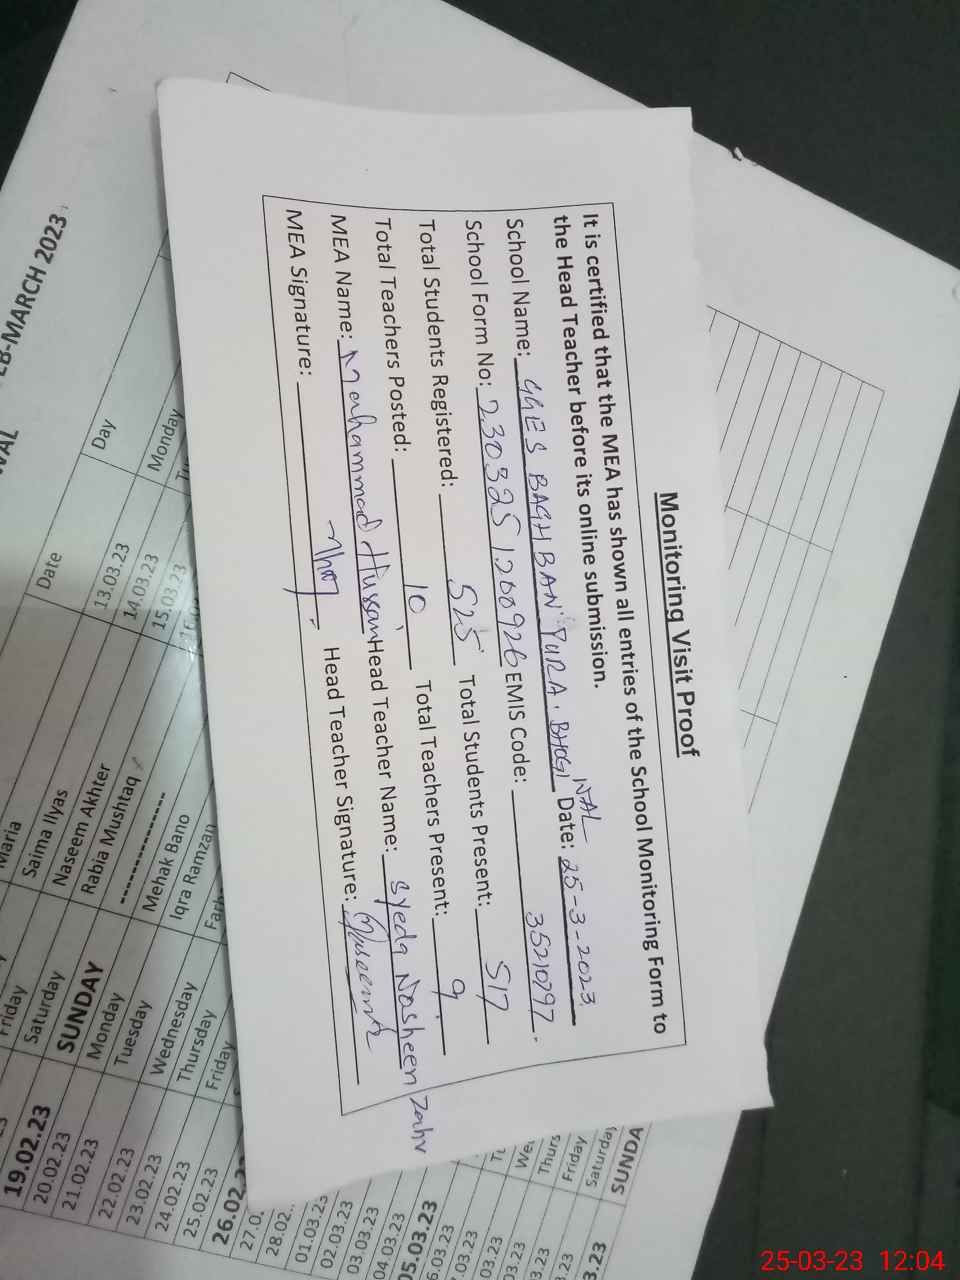 Monitoring Visit Proof
It is certified that the MEA has shown all entries of the School Monitoring Form to
the Head Teacher before its online submission.
School Name: GGES BAGHBAN PURA, BHOGIWAL Date: 25-3-2023
School Form No: 230325 1200926 EMIS Code: 35210797.
Total Students Registered: 525 Total Students Present: 517
Total Teachers Posted: 10 Total Teachers Present: 9
MEA Name: Muhammad Hussan Head Teacher Name: Syeda Nosheen Zahr
MEA Signature: Head Teacher Signature:
EB-MARCH 2023
Date Day
13.03.23 Monday
14.03.23
15.03.23
Maria Friday 19.02.23
Saima Ilyas Saturday 20.02.23
Naseem Akhter SUNDAY 21.02.23
Rabia Mushtaq Monday 22.02.23
-------------- Tuesday 23.02.23
Mehak Bano Wednesday 24.02.23
Iqra Ramzan Thursday 25.02.23
Friday
01.03.23
02.03.23
03.03.23
04.03.23
05.03.23
Friday
Saturday
25-03-23 12:04